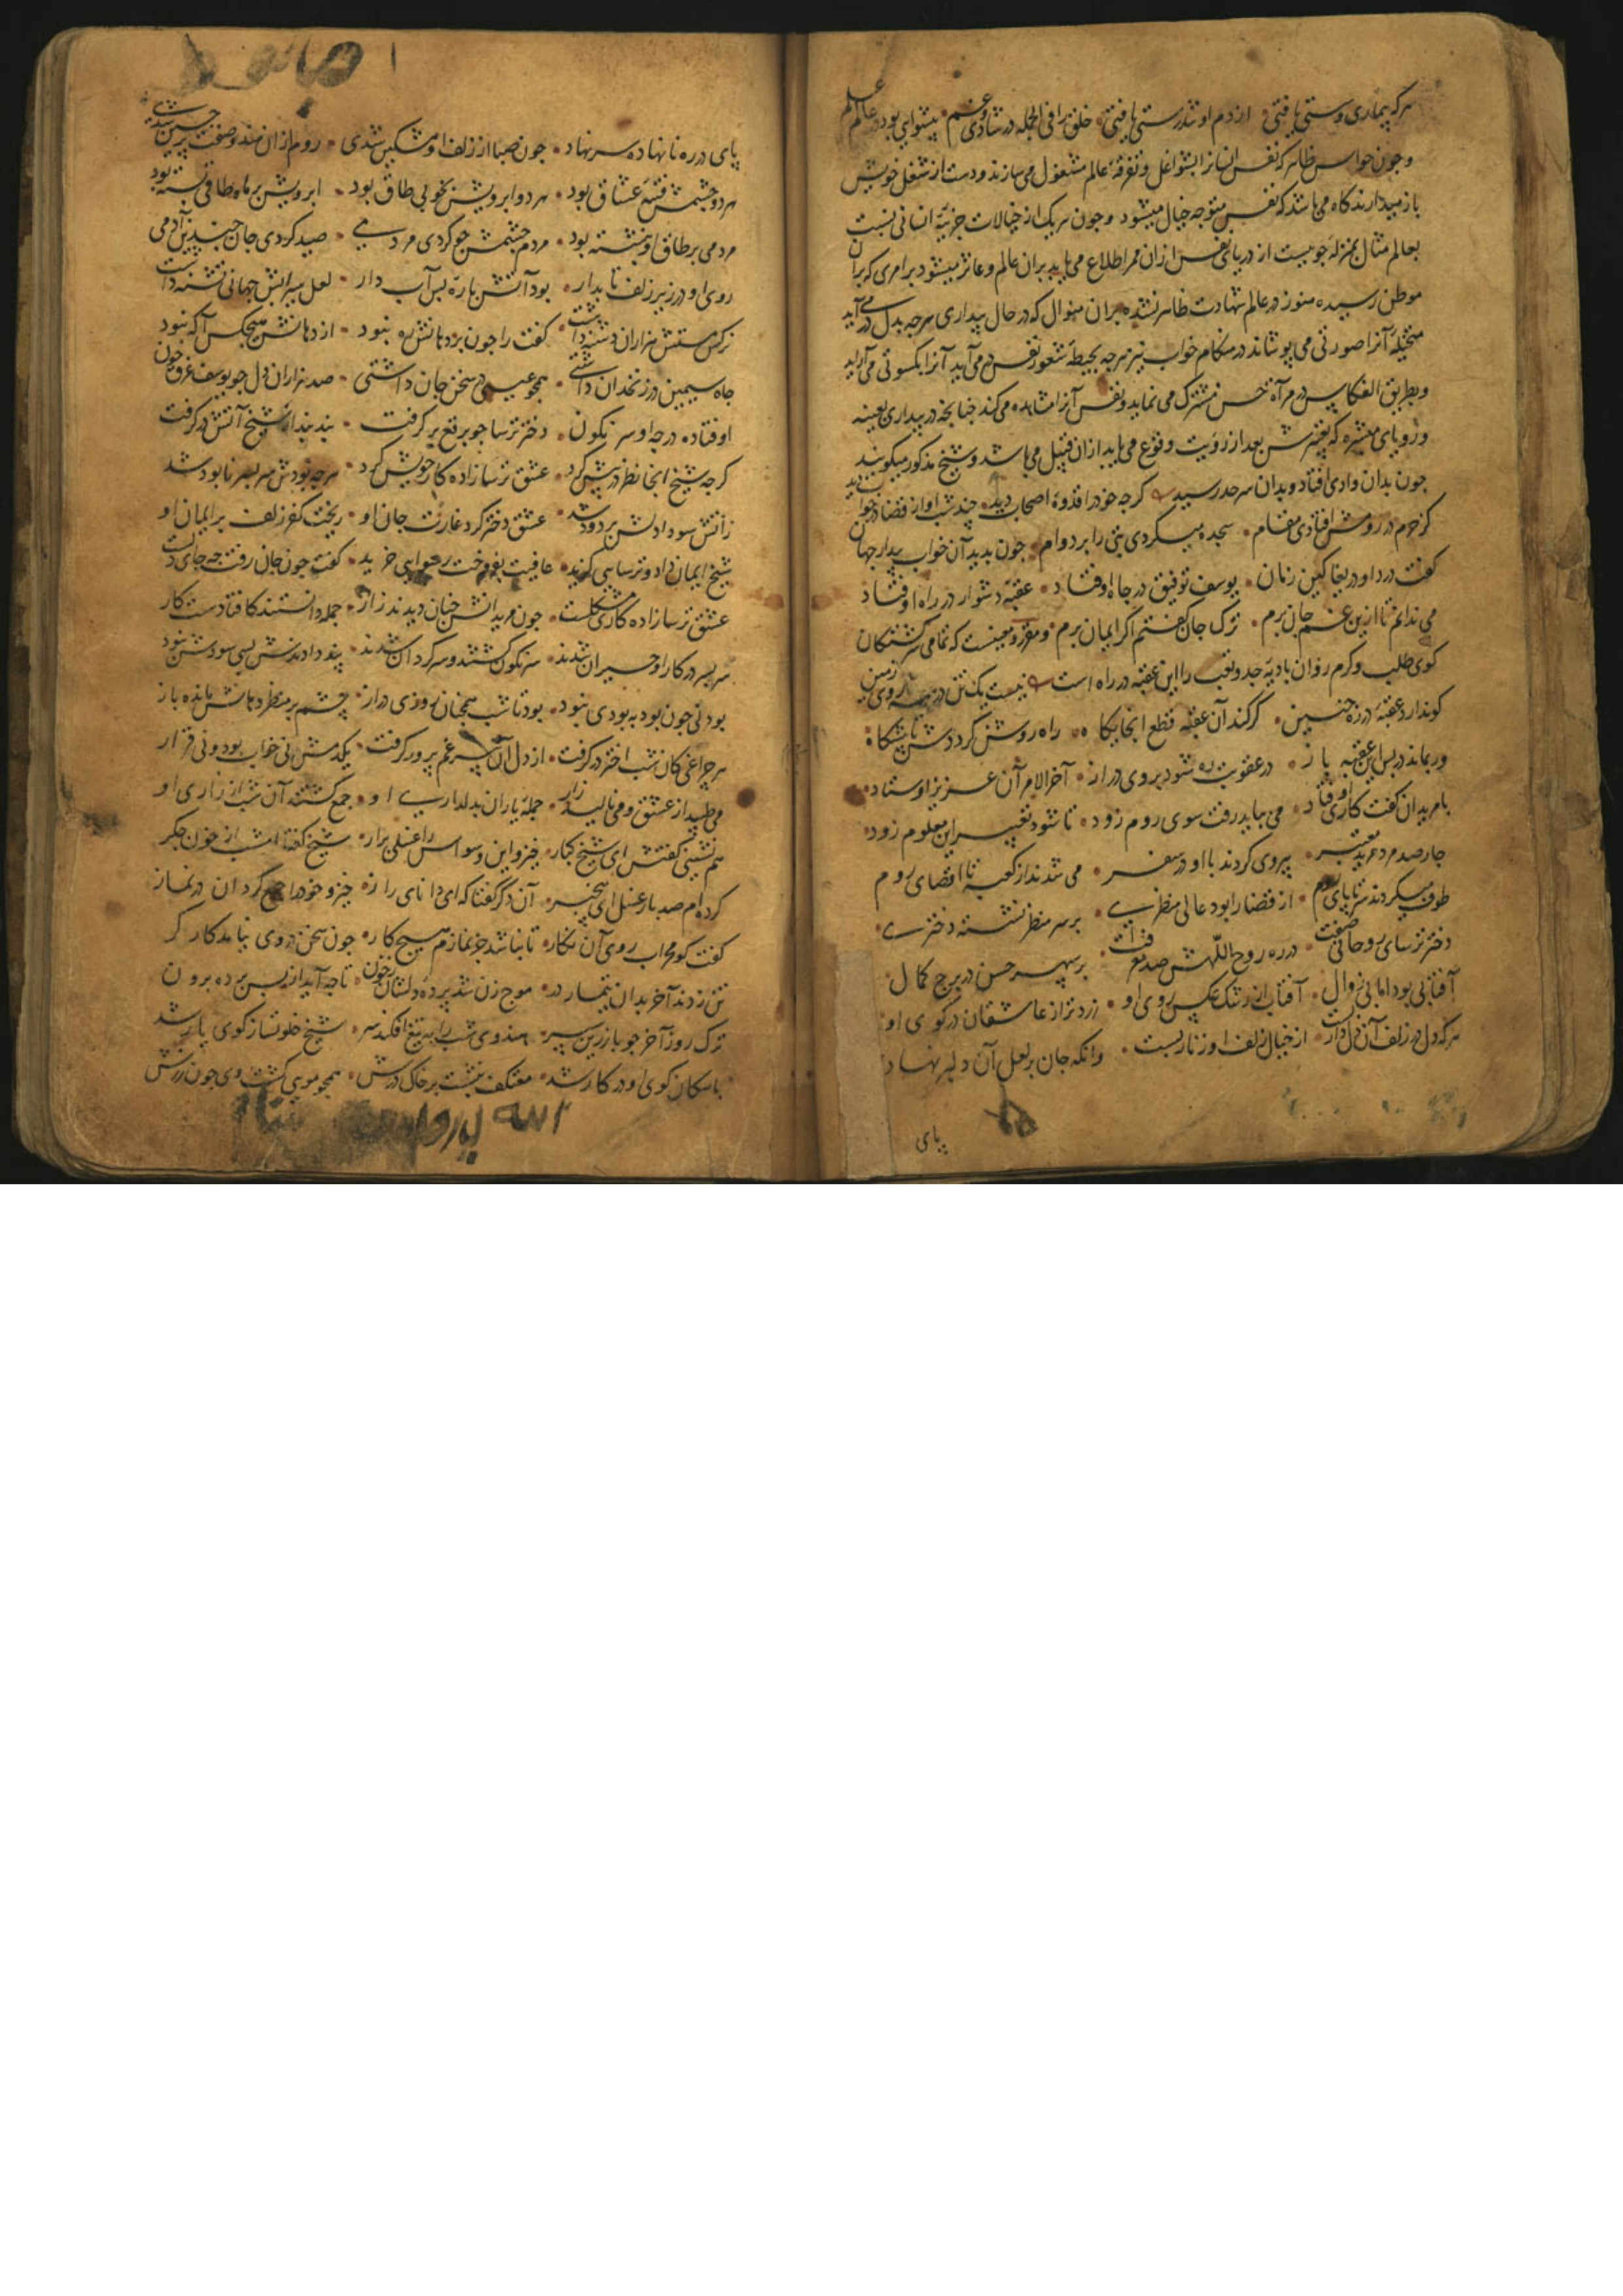 هرکه بیماری و سستی یافتی • از دم او تندرستی یافتی • خلق را فی الجمله در شادی و غم • پیشوایی بود در عالم علم
و چون حواس ظاهر که نفس انسانرا بشواغل و تفرقهٔ عالم مشغول می‌سازند دست از شغل خویش
باز میدارند گاه می باشد که نفس متوجه خیال میشود و چون هر یک از خیالات جزییهٔ انسانی نسبت
بعالم مثال بمنزلهٔ جوییست از دریای نفس از ان ممر اطلاع می یابد بران عالم و عاثر میشود بر امری که بران
موطن رسیده هنوز در عالم شهادت ظاهر نشده بران منوال که در حال بیداری هرچه بدل در می آید
متخیله آنرا صورتی می پوشاند در هنکام خواب نیز هرچه بحیطهٔ شعور نفس در می آید آنرا بکسوتی می آراید
و بطریق انعکاس در مرآة حس مشترک می نماید و نفس آنرا مشاهده می کند چنانچه در بیداری بعینه
و رویای مبشره که بعینه بعد از رؤیت وقوع می یابد ازان قبیل می باشد و شیخ مذکور میکویند
چون بدان وادی افتاد و بدان سرحد رسید • کرچه خود را قدوهٔ اصحاب دید • چند شب او از قضا در خواب دید
کز حرم در رومش افتادی مقام • سجده میکردی بتی را بر دوام • چون بدید آن خواب بیدار جهان
کفت دردا و دریغا کین زمان • یوسف توفیق در چاه اوفتاد • عقبهٔ دشوار در راه اوفتاد
می ندانم تا ازین غم جان برم • ترک جان کفتم اکر ایمان برم • و مقرر و معینست که تمامی سرکشتکان
کوی طلب و کرم روان بادیهٔ جد و تعب را این عقبه در راه است • نیست یک تن در همه روی زمین
کو ندارد عقبهٔ در ره چنین • کر کند آن عقبه قطع اینجایکا • راه روشن کرددش تا پیشکاه
ور بماند در پس این عقبه باز • در عقوبت ره شود بر وی دراز • آخر الامر آن عزیز اوستاد
با مریدان کفت کاری اوفتاد • می بباید رفت سوی روم زود • تا شود تعبیر این معلوم زود
چار صد مرد مرید معتبر • پیروی کردند با او در سفر • می شدند از کعبه تا اقصای روم
طوف میکردند سر تا پای روم • از قضا را بود عالی منظری • بر سر منظر نشسته دختری
دختر ترسای روحانی صفت • در ره روح اللهش صد معرفت • بر سپهر حسن در برج کمال
آفتابی بود اما بی زوال • آفتاب از رشک عکس روی او • زردتر از عاشقان در کوی او
هرکه دل در زلف آن دلدار بست • از خیال زلف او زنار بست • وانکه جان بر لعل آن دلبر نهاد
پای
پای در ره نانهاده سر نهاد • چون صبا از زلف او مشکین شدی • روم ازان هندو صفت پرچین شدی
هر دو چشمش فتنهٔ عشاق بود • هر دو ابرویش بخوبی طاق بود • ابرویش بر ماه طاقی بسته بود
مردمی بر طاق او بنشسته بود • مردم چشمش چو کردی مردمی • صید کردی جان چندین آدمی
روی او در زیر زلف تابدار • بود آتش پارهٔ بس آب دار • لعل سیرابش جهانی تشنه داشت
نرکس مستش هزاران دشنه داشت • کفت را چون بر دهانش ره نبود • از دهانش هیچکس آکه نبود
چاه سیمین در زنخدان داشتی • همچو عیسی در سخن جان داشتی • صد هزاران دل چو یوسف غرق خون
اوفتاده در چه او سرنکون • دختر ترسا چو برقع برکرفت • بند بند شیخ آتش درکرفت
کرچه شیخ آنجا نظر در پیش کرد • عشق ترسازاده کار خویش کرد • هرچه بودش سر بسر نابود شد
زاتش سودا دلش پر دود شد • عشق دختر کرد غارت جان او • ریخت کفر زلف بر ایمان او
شیخ ایمان داد و ترسایی کزید • عافیت بفروخت رسوایی خرید • کفت چون جان رفت چه جای دلست
عشق ترسازاده کاری مشکلست • چون مریدانش چنان دیدند زار • جمله دانستند کافتادست کار
سر بسر در کار او حیران شدند • سرنکون کشتند و سرکردان شدند • پند دادندش بسی سودش نبود
بودنی چون بود به بودی نبود • بود تا شب همچنان روزی دراز • چشم بر منظر دهانش مانده باز
هر چراغی کان شب اختر درکرفت • از دل آن پیر غم پرور کرفت • یکدمش نی خواب بود و نی قرار
می طپید از عشق و می نالید زار • جملهٔ یاران بدلداری او • جمع کشته آن شب از زاری او
همنشینی کفتش ای شیخ کبار • خیز و این وسواس را غسلی برار • شیخ کفتا امشب از خون جکر
کرده‌ام صد بار غسل ای بیخبر • آن دکر کفتا که ای دانای راز • خیز و خود را جمع کردان در نماز
کفت کو محراب روی آن نکار • تا نباشد جز نمازم هیچ کار • چون سخن در وی نیامد کارکر
تن زدند آخر بدان تیمار در • موج زن شد پردهٔ دلشان ز خون • تا چه آید از پس پرده برون
ترک روز آخر چو با زرین سپر • هندوی شب را به تیغ افکند سر • شیخ خلوتساز کوی یار شد
با سکان کوی او در کار شد • معتکف بنشست بر خاک درش • همچو مویی کشت وی چون زرش